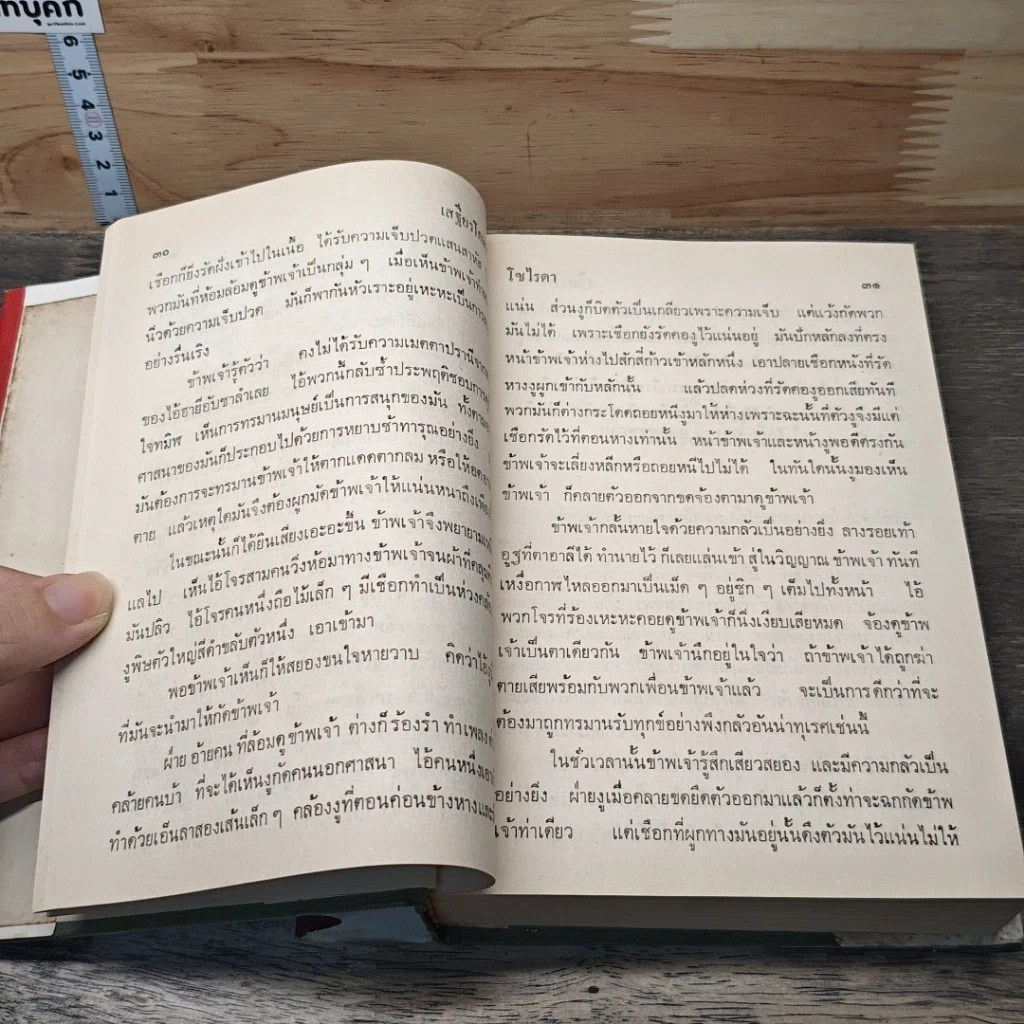 6
5
4
3
2
1
๓๐
เชือกก็ยิ่งรัดฝังเข้าไปในเนื้อ ได้รับความเจ็บปวดแสนสาหัส
พวกมันที่ห้อมล้อมดูข้าพเจ้าเป็นกลุ่ม ๆ เมื่อเห็นข้าพเจ้าทำ
นิ่วด้วยความเจ็บปวด มันก็พากันหัวเราะอยู่เหะหะเป็นการ
อย่างรื่นเริง
ข้าพเจ้ารู้ตัวว่า คงไม่ได้รับความเมตตาปรานีจาก
ของไอ้ฮายีอับซาลำเลย ไอ้พวกนี้กลับซ้ำประพฤติชอบการ
ใจทมิฬ เห็นการทรมานมนุษย์เป็นการสนุกของมัน
ศาสนาของมันก็ประกอบไปด้วยการหยาบช้าทารุณอย่างยิ่ง
มันต้องการจะทรมานข้าพเจ้าให้ตากแดดตากลม หรือให้
ตาย แล้วเหตุใดมันจึงต้องผูกมัดข้าพเจ้าให้แน่นหนาถึงเพียง
ในขณะนั้นก็ได้ยินเสียงเอะอะขึ้น ข้าพเจ้าจึงพยายาม
แลไป เห็นไอ้โจรสามคนวิ่งห้อมาทางข้าพเจ้าจนผ้าที่
มันปลิว ไอ้โจรคนหนึ่งถือไม้เล็ก ๆ มีเชือกทำเป็นห่วง
งูพิษตัวใหญ่สีดำขลับตัวหนึ่ง เอาเข้ามา
พอข้าพเจ้าเห็นก็ให้สยองขนใจหายวาบ คิดว่า
ที่มันจะนำมาให้กัดข้าพเจ้า
ฝ่ายอ้ายคนที่ล้อมดูข้าพเจ้า ต่างก็ร้องรำทำเพลง
คล้ายคนบ้า ที่จะได้เห็นงูกัดคนนอกศาสนา ไอ้คนหนึ่ง
ทำด้วยเอ็นลาสองเส้นเล็ก ๆ คล้องงูที่ตอนค่อนข้างหาง
โซไรดา
๓๑
แน่น ส่วนงูก็บิดตัวเป็นเกลียวเพราะความเจ็บ แต่แว้งกัดพวก
มันไม่ได้ เพราะเชือกยังรัดคองูไว้แน่นอยู่ มันปักหลักลงที่ตรง
หน้าข้าพเจ้าห่างไปสักสี่ก้าวเข้าหลักหนึ่ง เอาปลายเชือกหนังที่รัด
หางงูผูกเข้ากับหลักนั้น แล้วปลดห่วงที่รัดคองูออกเสียทันที
พวกมันก็ต่างกระโดดถอยหนีงูมาให้ห่างเพราะฉะนั้นที่ตัวงูจึงมีแต่
เชือกรัดไว้ที่ตอนหางเท่านั้น หน้าข้าพเจ้าและหน้างูพอดีตรงกัน
ข้าพเจ้าจะเลี่ยงหลีกหรือถอยหนีไปไม่ได้ ในทันใดนั้นงูมองเห็น
ข้าพเจ้า ก็คลายตัวออกจากขดจ้องตามาดูข้าพเจ้า
ข้าพเจ้ากลั้นหายใจด้วยความกลัวเป็นอย่างยิ่ง ลางรอยเท้า
อูฐที่ตาอาลีได้ทำนายไว้ ก็เลยแล่นเข้าสู่ในวิญญาณข้าพเจ้าทันที
เหงื่อกาฬไหลออกมาเป็นเม็ด ๆ อยู่ซิก ๆ เต็มไปทั้งหน้า ไอ้
พวกโจรที่ร้องเหะหะคอยดูข้าพเจ้าก็นิ่งเงียบเสียหมด จ้องดูข้าพ
เจ้าเป็นตาเดียวกัน ข้าพเจ้านึกอยู่ในใจว่า ถ้าข้าพเจ้าได้ถูกฆ่า
ตายเสียพร้อมกับพวกเพื่อนข้าพเจ้าแล้ว จะเป็นการดีกว่าที่จะ
ต้องมาถูกทรมานรับทุกข์อย่างพึงกลัวอันน่าทุเรศเช่นนี้
ในชั่วเวลานั้นข้าพเจ้ารู้สึกเสียวสยอง และมีความกลัวเป็น
อย่างยิ่ง ฝ่ายงูเมื่อคลายขดยืดตัวออกมาแล้วก็ตั้งท่าจะฉกกัดข้าพ
เจ้าท่าเดียว แต่เชือกที่ผูกทางมันอยู่นั้นดึงตัวมันไว้แน่นไม่ให้